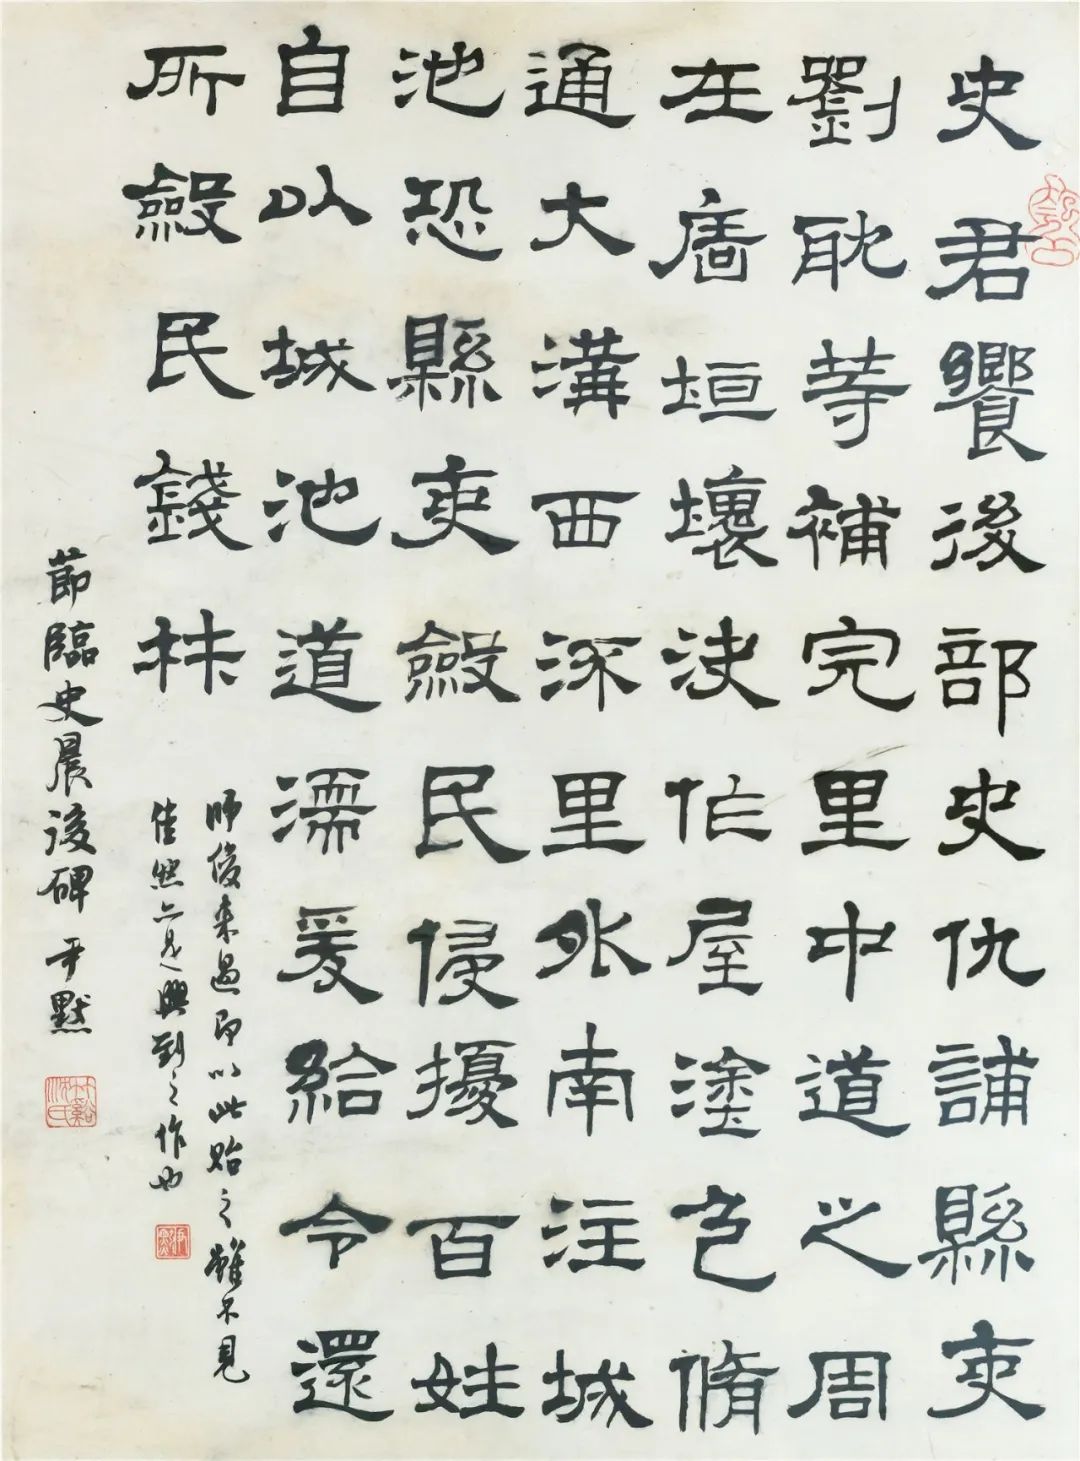 史君饗後部史仇誧縣吏
劉耽等補完里中道之周
在廧垣壞決作屋塗色脩
通大溝西流里外南注城
池恐縣吏斂民侵擾百姓
自以城池道濡麥給令還
所斂民錢材
師俊来過即以此貽之雖不見
佳然亦見興到之作也
節臨史晨後碑 尹默
竹谿沈氏